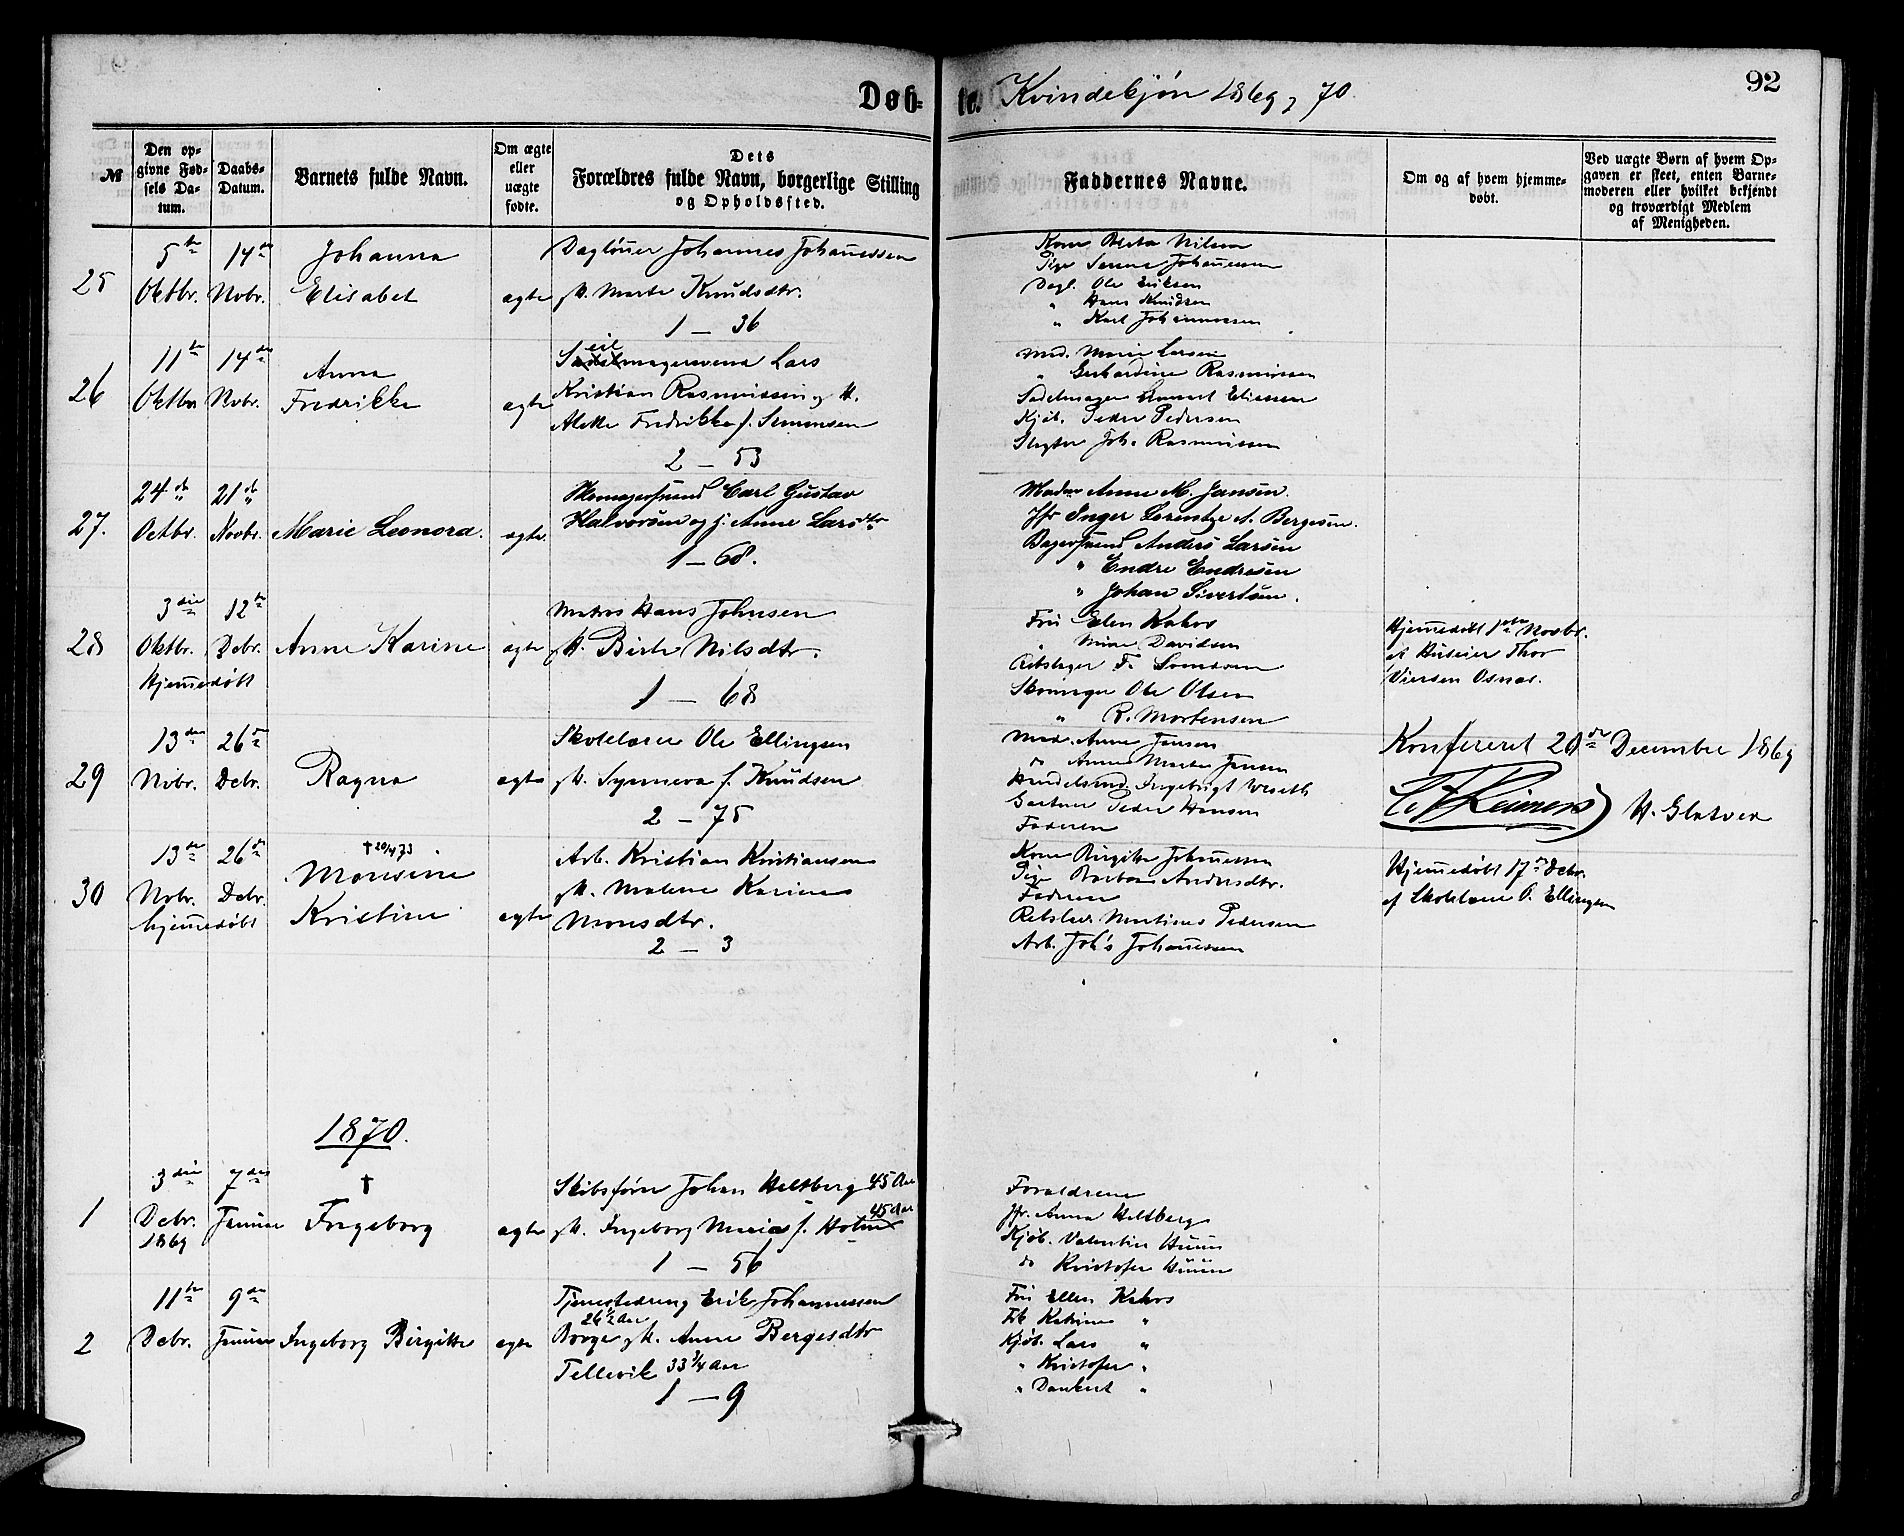 92
Døb- te. Kvindekjøn 1869, 70.
№
Den op-
givne Fød-
sels Da-
tum.
Daabs-
Datum.
Barnets fulde Navn.
Om ægte
eller
uægte
fødte.
Dets
Forældres fulde Navn, borgerlige Stilling
og Opholdssted.
Faddernes Navne.
Om og af hvem hjemme-
døbt.
Ved uægte Børn af hvem Op-
gaven er skeet, enten Barne-
moderen eller hvilket bekjendt
og troværdigt Medlem
af Menigheden.
25
5te
Oktbr.
14de
Novbr.
Johanna
Elisabet
ægte
Dagløner Johannes Johannessen
H. Marte Knudsdtr.
1 — 36
Kone Berta Nilsen
Pige Serine Johannessen
Dagl. Ole Eriksen
" Hans Knudsen
" Karl Johannessen
26
11te
Oktbr
14de
Nvbr.
Anna
Fredrikke
ægte
Seilmagersvend Lars
Kristian Rasmussen og H.
Alette Fredrikke f. Simonsen
2 — 53
Mad. Marie Larsen
" Gerhardine Rasmussen
Sadelmager Eliassen
Kjøb. Peder Pedersen
Slagter Joh. Rasmussen
27.
24de
Octbr.
21de
Novbr.
Marie Leonora.
ægte.
Skomagersvend Carl Gustav
Halvorsen og H. Anne Larsdtr
1 — 68.
Madm Anne M. Jansen.
Jfr Inger Lorentze A. Bergesen.
Bagersvend Anders Larsen
" Endre Endresen
" Johan Sivertsen.
28
3die
Oktbr.
Hjemmedøbt
12te
Debr.
Anne Karine
ægte
Matros Hans Johnsen
H. Birte Nilsdtr.
1 — 68
Fru Elen Kahrs
" Mine Davidsen
Skomager Ole Olsen
" R. Mortensen
Hjemmedøbt 1ste Novbr.
af Huseier Thor
Iversen Osnæs.
29
13de
Nvbr.
26de
Debr.
Ragna
ægte
Skolelærer Ole Ellingsen
H. Synneva f. Knudsen
2 — 75
Mad. Anne Jensen
do Anne Marte Jensen
Handelsmd. Ingebrigt
Gartner Peder Hansen
Faderen
Konfereret 29de December 1869
30
13de
Nvbr.
hjemmedøbt
26de
Debr.
† 20/4 73
Monsine
Kristine
ægte
Arb. Kristian Kristiansen
H. Malene Karine
Monsdtr.
2 — 3
Kone Birgitte Johannessen
Pige Barbra Andersdtr.
Faderen
Martinus Pedersen
Arb. Joh's Johannessen
Hjemmedøbt 17de Debr.
af Skolelærer O. Ellingsen
1870.
1
3die
Debr.
1869
7de
Januar
†
Ingeborg
ægte
Skibsfører Johan Heltberg 45 Aar
H. Ingeborg Maria f. Holm 45 Aar
1 — 56
Forældrene
Jfr. Anna Heltberg
Kjøb. Valentin Huun
do Kristofer Huun
2
11te
Debr.
9de
Januar
Ingeborg Birgitte
ægte
Tjenestedreng Erik Johannessen
26 1/2 Aar
Borge H. Anne Bergesdtr
Tellevik 33 3/4 Aar
1 — 9
Fru Ellen Kahrs
Frk Katrine "
Kjøb. Lars "
" Kristofer "
" Dankert "